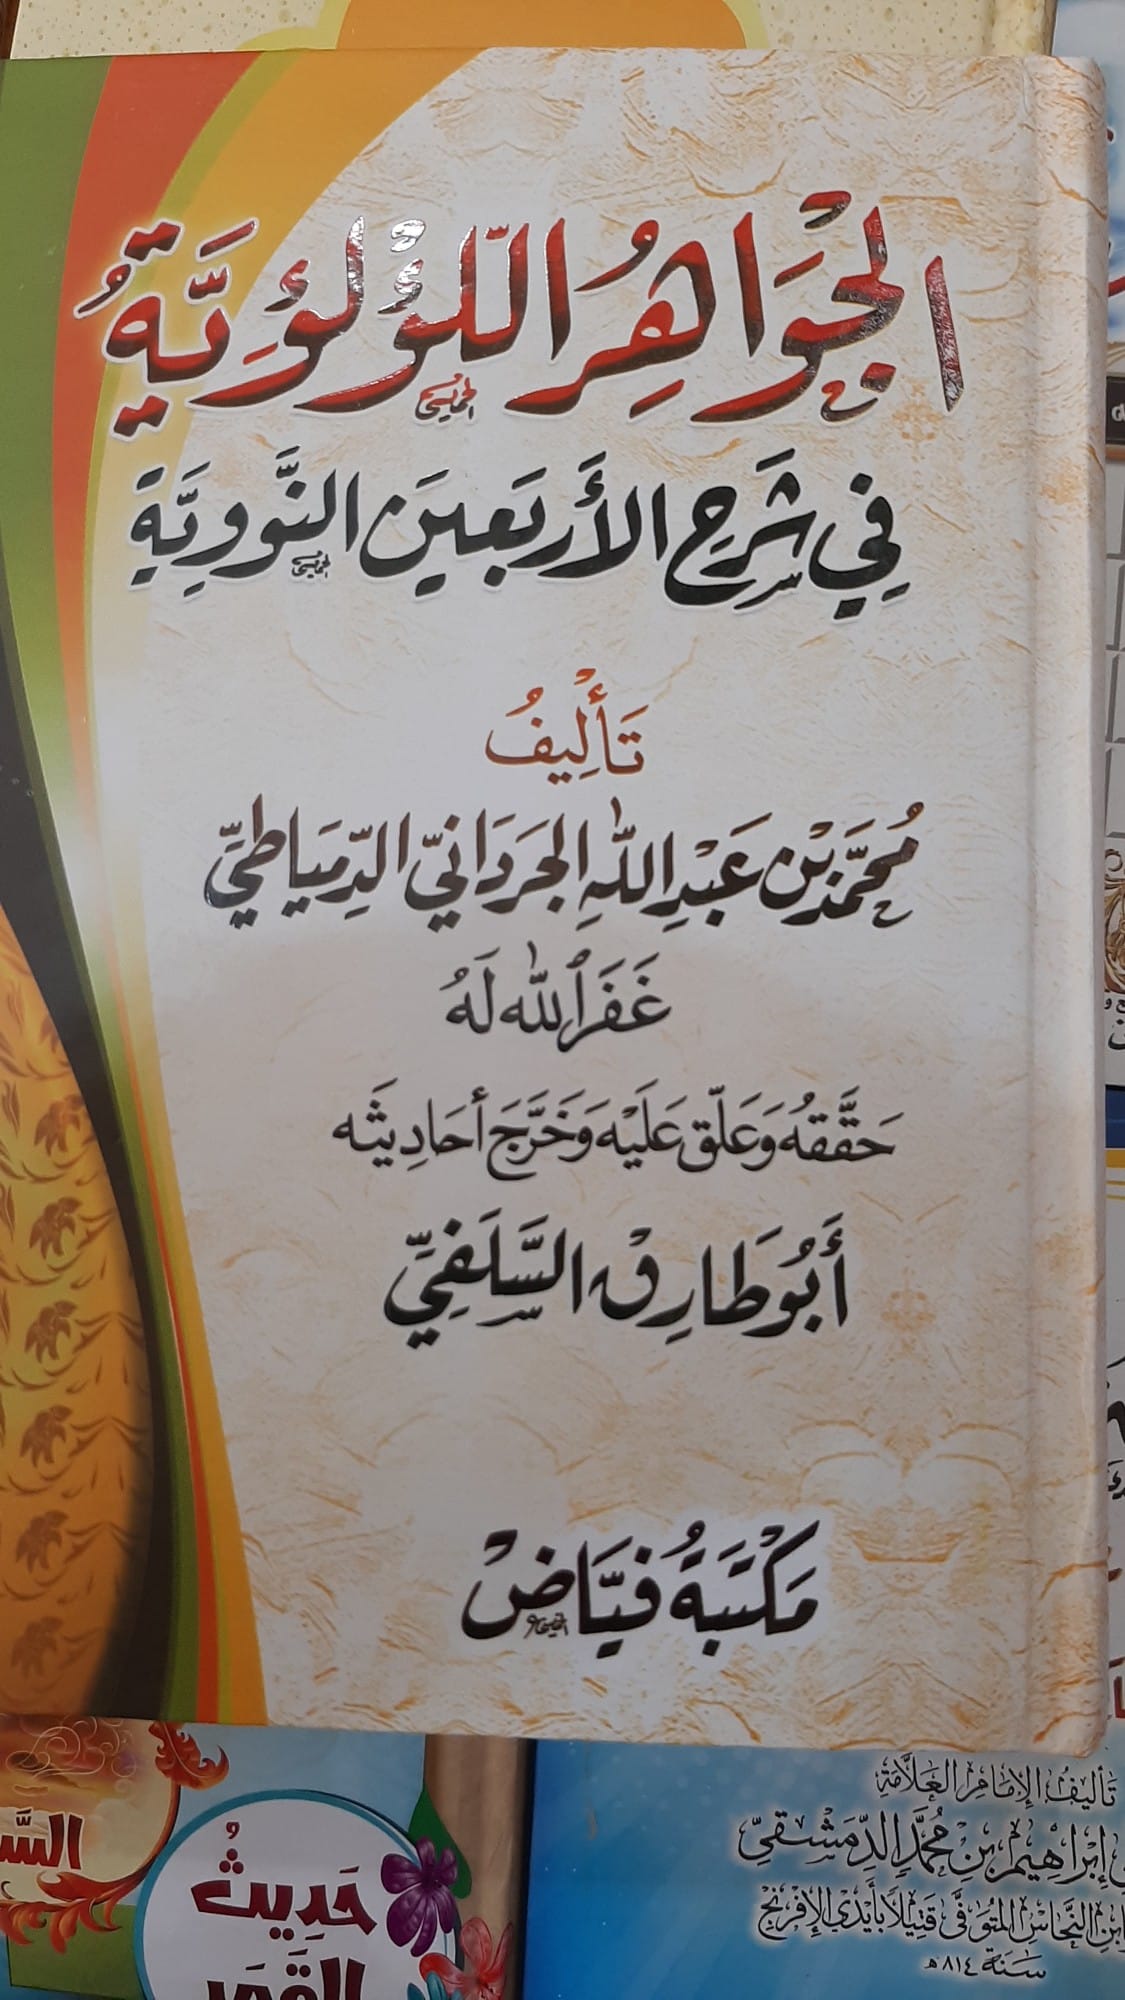 الْجَوَاهِرُ اللُّؤْلُؤِيَّةُ
فِي شَرَحِ الأَرْبَعِينَ النَّوَوِيَّةِ
تَأْلِيفُ
مُحَمَّد بْن عَبْدِ اللهِ الجَرَدَانِيّ الدِّمْيَاطِيّ
غَفَرَ اللهُ لَهُ
حَقَّقَهُ وَعَلَّقَ عَلَيْهِ وَخَرَّجَ أَحَادِيثَه
أَبُو طَارِقْ السَّلَفِيّ
مَكْتَبَةُ فَيَّاضْ
حَدِيثُ
القَمَر
تَأْلِيفُ الإِمَامِ العَلَّامَةِ
إِبْرَاهِيمَ بْنِ مُحَمَّدِ الدِّمَشْقِيّ
ابن النَّحَّاسِ المُتَوَفَّى قَتِيلًا بِأَيْدِي الإِفْرِنْجِ
سَنَة ٨١٤هـ